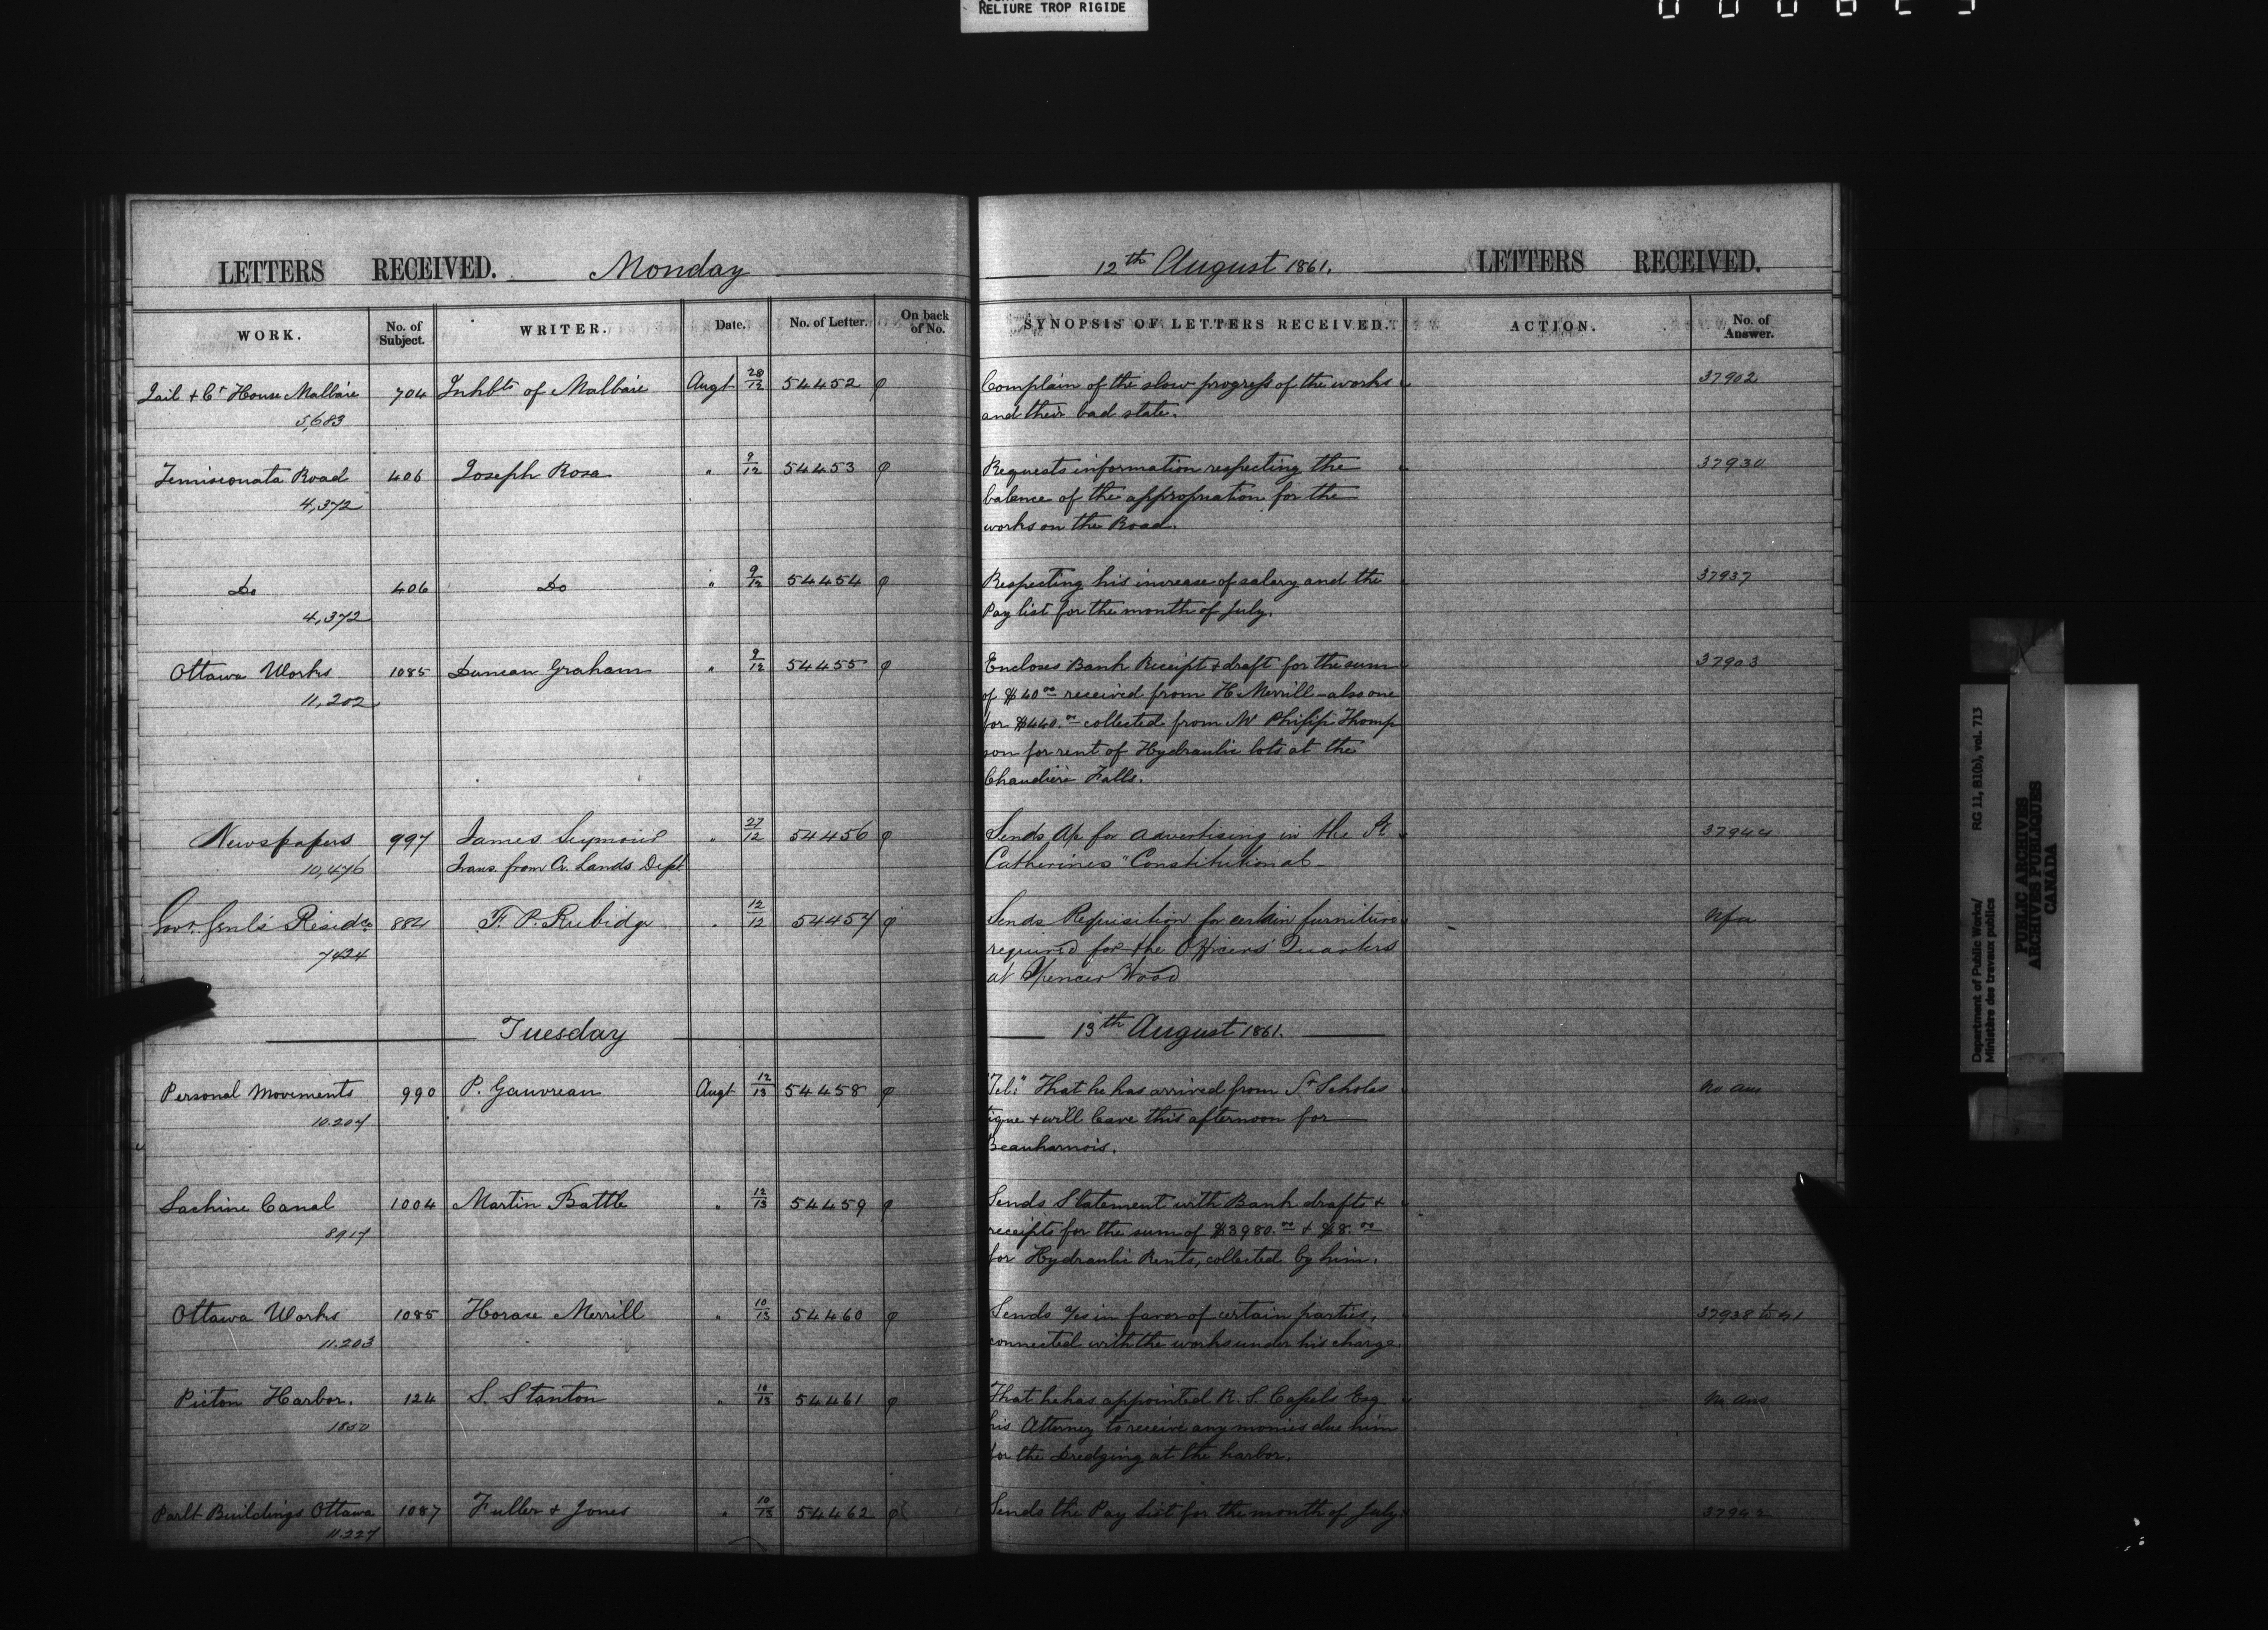 RELIURE TROP RIGIDE
LETTERS RECEIVED. Monday
WORK. No. of Subject. WRITER. Date. No. of Letter. On back of No.
Jail + Ct House Malbaie 704 Inhbts of Malbaie Augt 28/12 54452
5,683
Temisconata Road 406 Joseph Rosa " 9/12 54453
4,372
Do 406 Do " 9/12 54454
4,372
Ottawa Works 1085 Duncan Graham " 9/12 54455
11,202
Newspapers 997 James Seymour " 27/12 54456
10,476 Trans. from Cr. Lands Dept
Govr. Genl's Residce 884 F. P. Rubidge " 12/12 54457
7424
Tuesday
Personal Movements 990 P. Gauvreau Augt 12/13 54458
10.204
Lachine Canal 1004 Martin Battle " 12/13 54459
8917
Ottawa Works 1085 Horace Merrill " 10/13 54460
11.203
Picton Harbor. 124 S. Stanton " 10/13 54461
1850
Parlt Buildings Ottawa 1087 Fuller + Jones " 10/13 54462
11.227
12th August 1861. LETTERS RECEIVED.
SYNOPSIS OF LETTERS RECEIVED. ACTION. No. of Answer.
Complain of the slow progress of the works 37902
and their bad state.
Requests information respecting the 37930
balance of the appropriation for the
works on the Road.
Respecting his increase of salary and the 37937
Pay list for the month of July.
Encloses Bank Receipt & draft for the sum 37903
of $40.00 received from H. Merrill - also one
for $440.00 collected from Mr Philip Thomp
son for rent of Hydraulic lots at the
Chaudière Falls.
Sends A/c for advertising in the St 37944
Catherines "Constitutional-
Sends Requisition for certain furniture Nfa
required for the Officers' Quarters
at Spencer Wood
13th August 1861.
"Tel:" That he has arrived from St Scholas No ans
tique + will leave this afternoon for
Beauharnois.
Sends Statement with Bank drafts +
receipts for the sum of $3980.00 + $8.00
for Hydraulic Rents, collected by him.
Sends a/cs in favor of certain parties, 37938 to 41
connected with the works under his charge.
That he has appointed R. S. Cassels Esq No ans
his Attorney to receive any monies due him
for the Dredging at the harbor.
Sends the Pay List for the month of July. 37942
Department of Public Works/ RG 11, B1(b), vol. 713
Ministère des travaux publics
PUBLIC ARCHIVES
ARCHIVES PUBLIQUES
CANADA